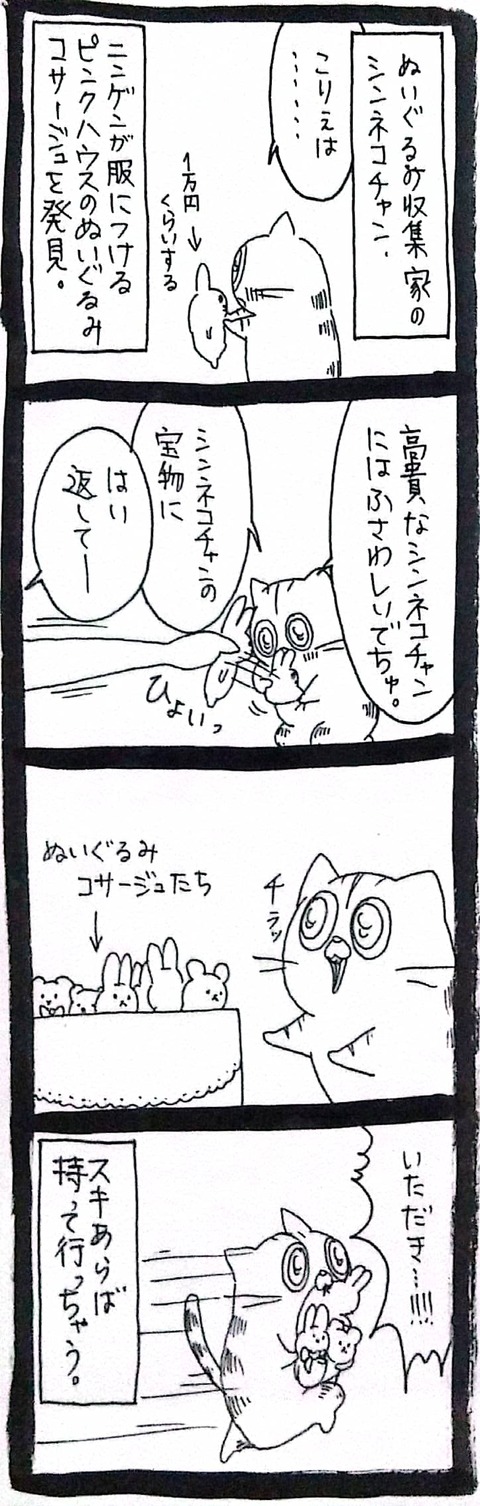 ぬいぐるみ収集家の
シンネコチャン.
こりぇは
‥‥‥
1万円
くらいする
ニンゲンが服につける
ピンクハウスのぬいぐるみ
コサージュを発見。
高貴なシンネコチャン
にはふさわしいでちゅ。
シンネコチャンの
宝物に
はい
返してー
ひょいっ
チラッ
ぬいぐるみ
コサージュたち
いただき…!!!!
スキあらば
持って行っちゃう。